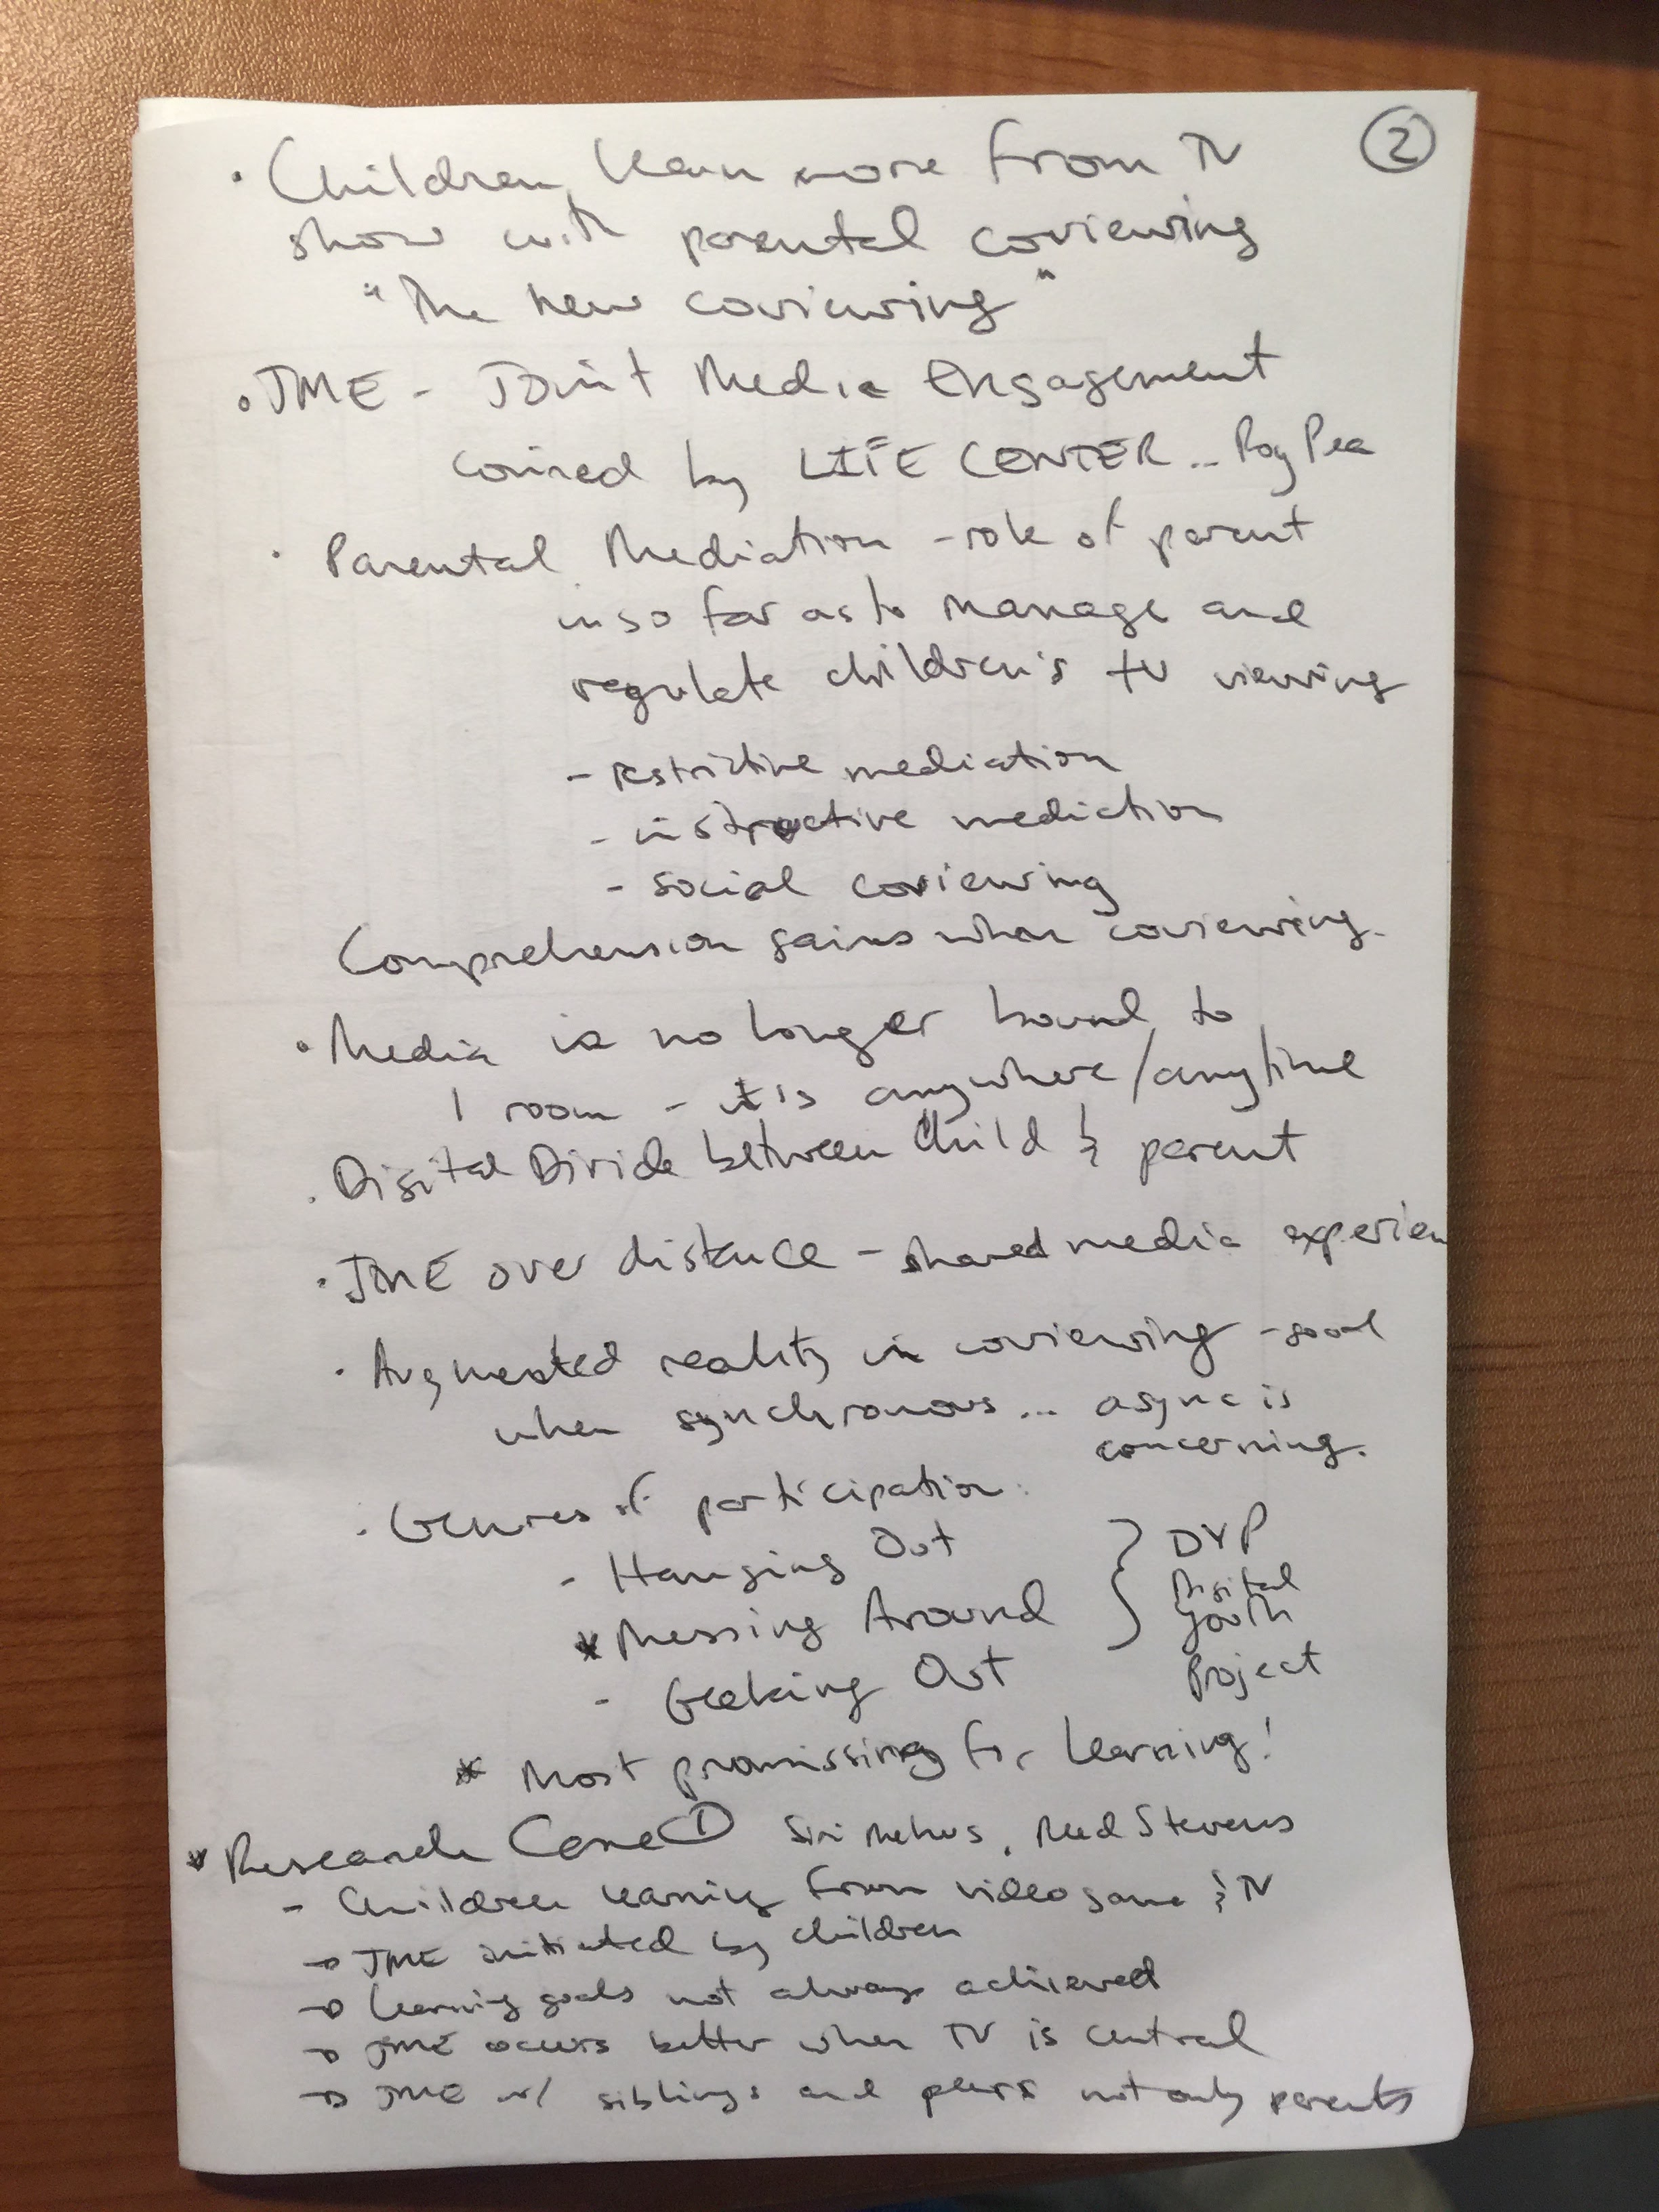 ②
• Children learn more from TV
show with parental coviewing
"The new coviewing"
• JME - Joint Media Engagement
coined by LIFE CENTER .. Roy Pea
• Parental Mediation - role of parent
in so far as to manage and
regulate children's tv viewing
- restrictive mediation
- instructive mediation
- social coviewing
Comprehension gains when coviewing.
• Media is no longer bound to
1 room - it is anywhere/anytime
• Digital Divide between Child & parent
• JME over distance - shared media experien
• Augmented reality in coviewing - good
when synchronous... async is
concerning.
• Genres of participation:
- Hanging Out
* Messing Around } DYP
- Geeking Out
Digital
Youth
Project
* Most promissing for learning!
* Research Case ① Siri Mehus, Reed Stevens
- Children learning from videogame & TV
→ JME initiated by children
→ learning goals not always achieved
→ JME occurs better when TV is central
→ JME w/ siblings and peers not only parents